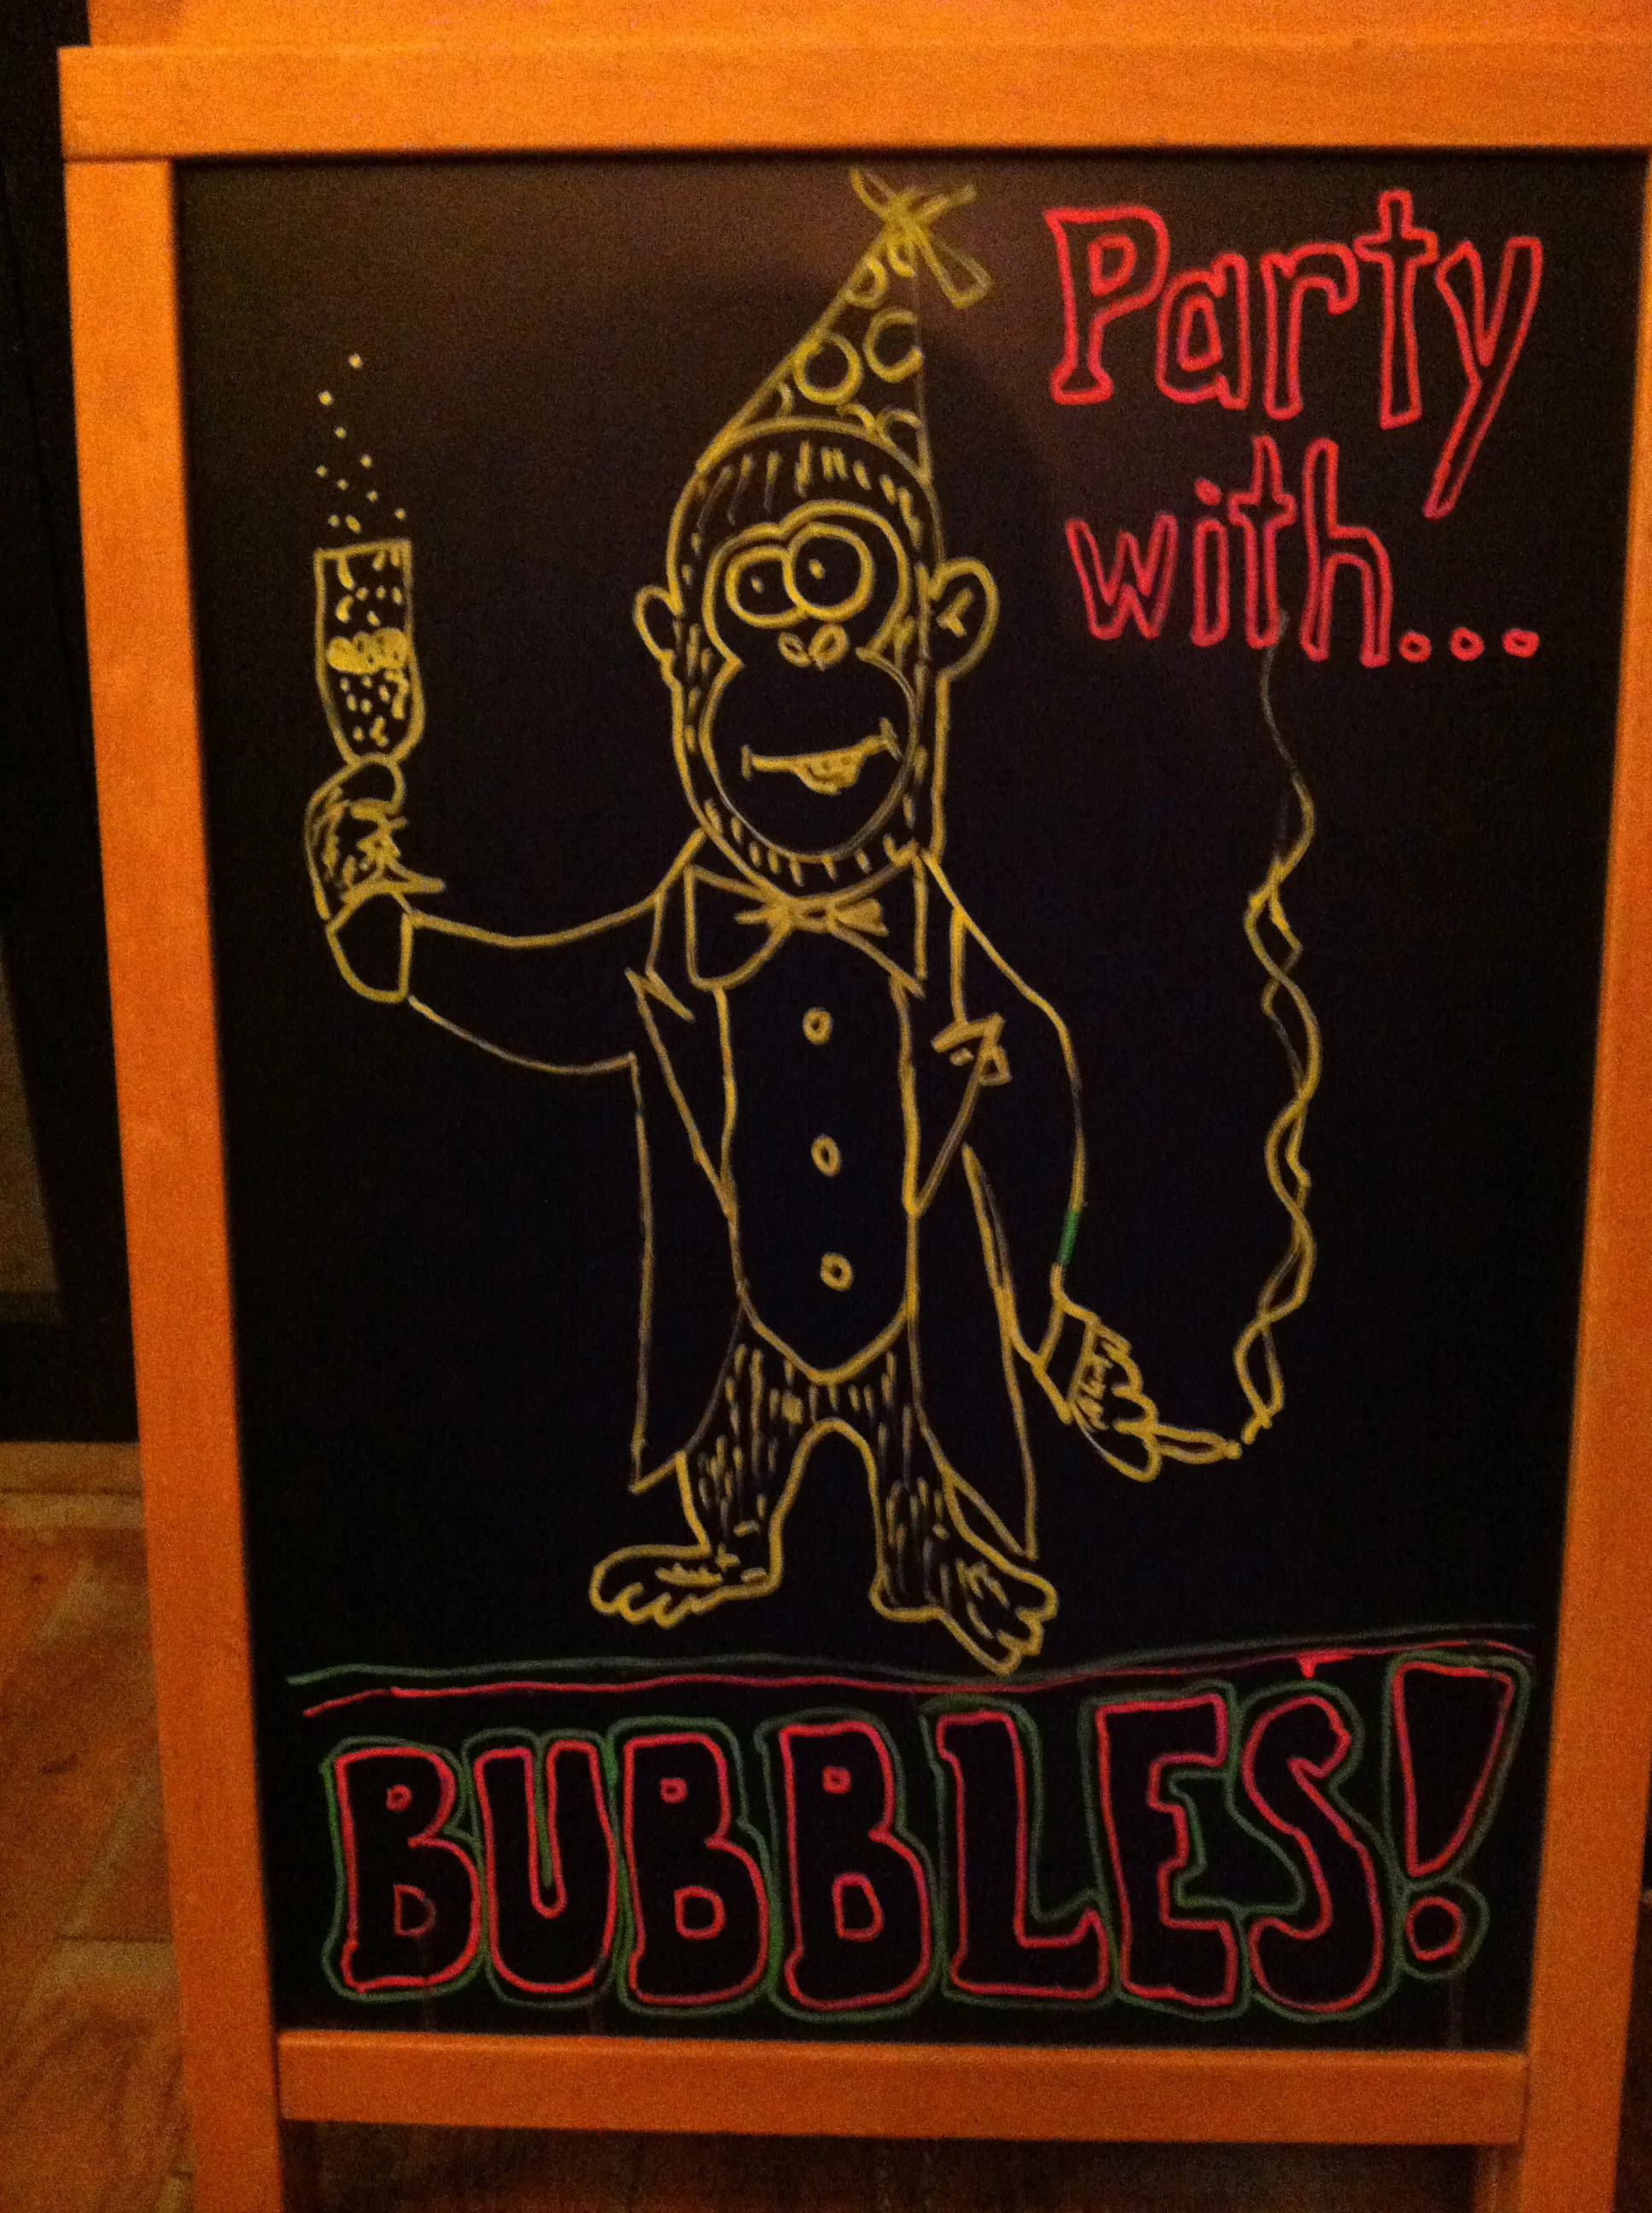 Party
with...
BUBBLES!